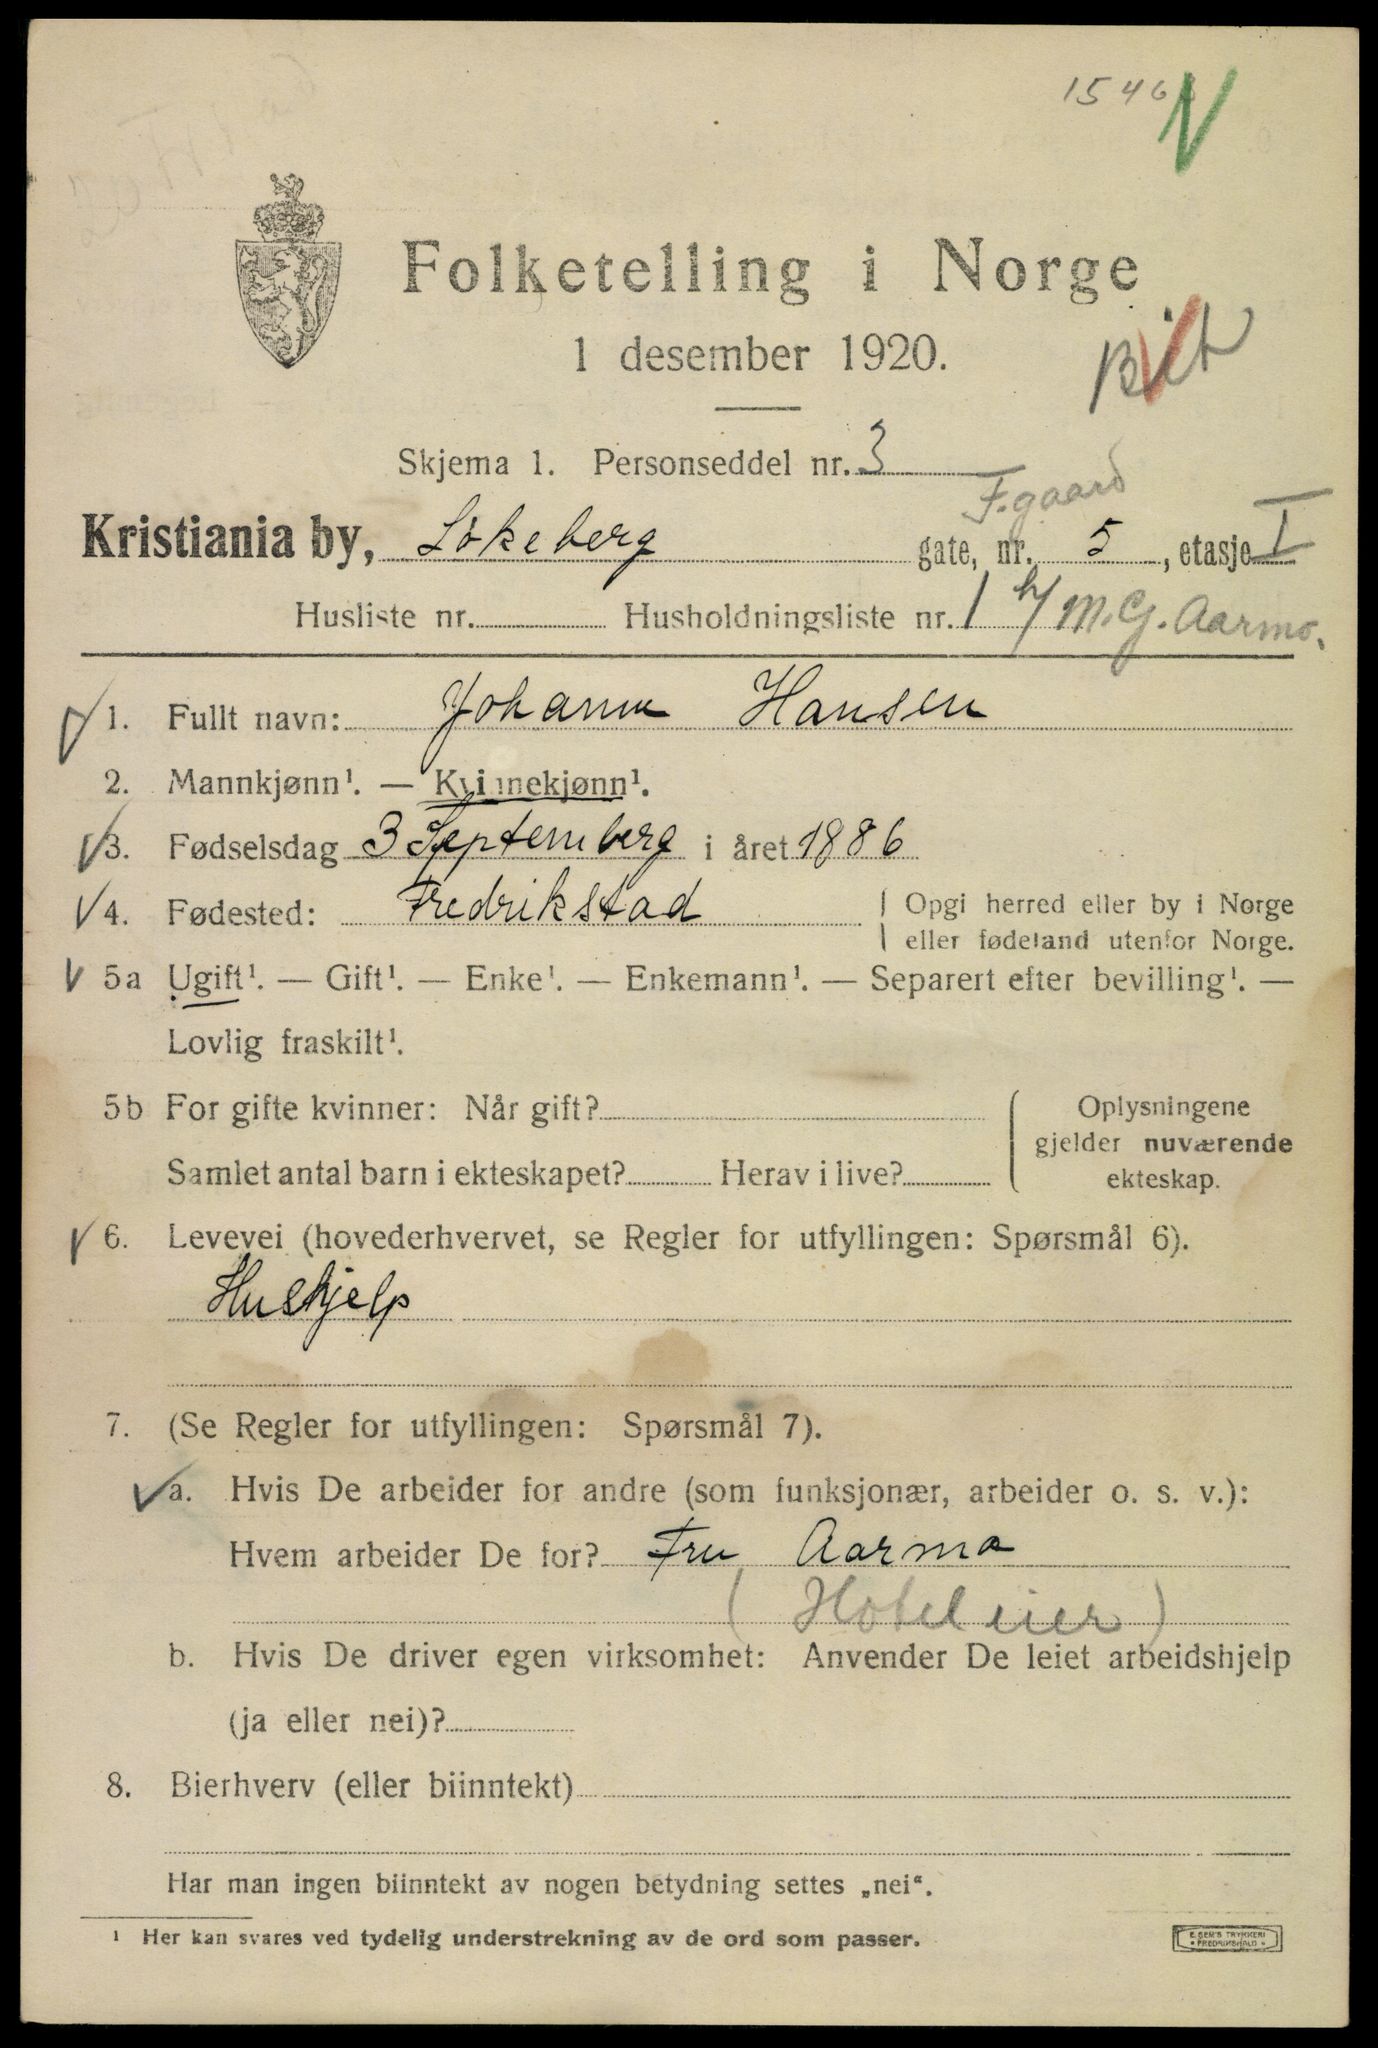 1546
Folketelling i Norge
1 desember 1920.
Skjema 1. Personseddel nr. 3
F.gaard
Kristiania by, Løkeberg gate, nr. 5, etasje I
Husliste nr. Husholdningsliste nr. 1 h/ M. G. Aarmo.
1. Fullt navn: Johanne Hansen
2. Mannkjønn¹. — Kvinnekjønn¹.
3. Fødselsdag 3 September i året 1886
4. Fødested: Fredrikstad Opgi herred eller by i Norge
eller fødeland utenfor Norge.
5a Ugift¹. — Gift¹. — Enke¹. — Enkemann¹. — Separert efter bevilling¹. —
Lovlig fraskilt¹.
5b For gifte kvinner: Når gift? Oplysningene
gjelder nuværende
Samlet antal barn i ekteskapet? Herav i live? ekteskap.
6. Levevei (hovederhvervet, se Regler for utfyllingen: Spørsmål 6).
Hushjelp
7. (Se Regler for utfyllingen: Spørsmål 7).
a. Hvis De arbeider for andre (som funksjonær, arbeider o. s. v.):
Hvem arbeider De for? Fru Aarmo
(Hoteleier)
b. Hvis De driver egen virksomhet: Anvender De leiet arbeidshjelp
(ja eller nei)?
8. Bierhverv (eller biinntekt)
Har man ingen biinntekt av nogen betydning settes „nei“.
¹ Her kan svares ved tydelig understrekning av de ord som passer.
E. SEM'S TRYKKERI
FREDRIKSHALD